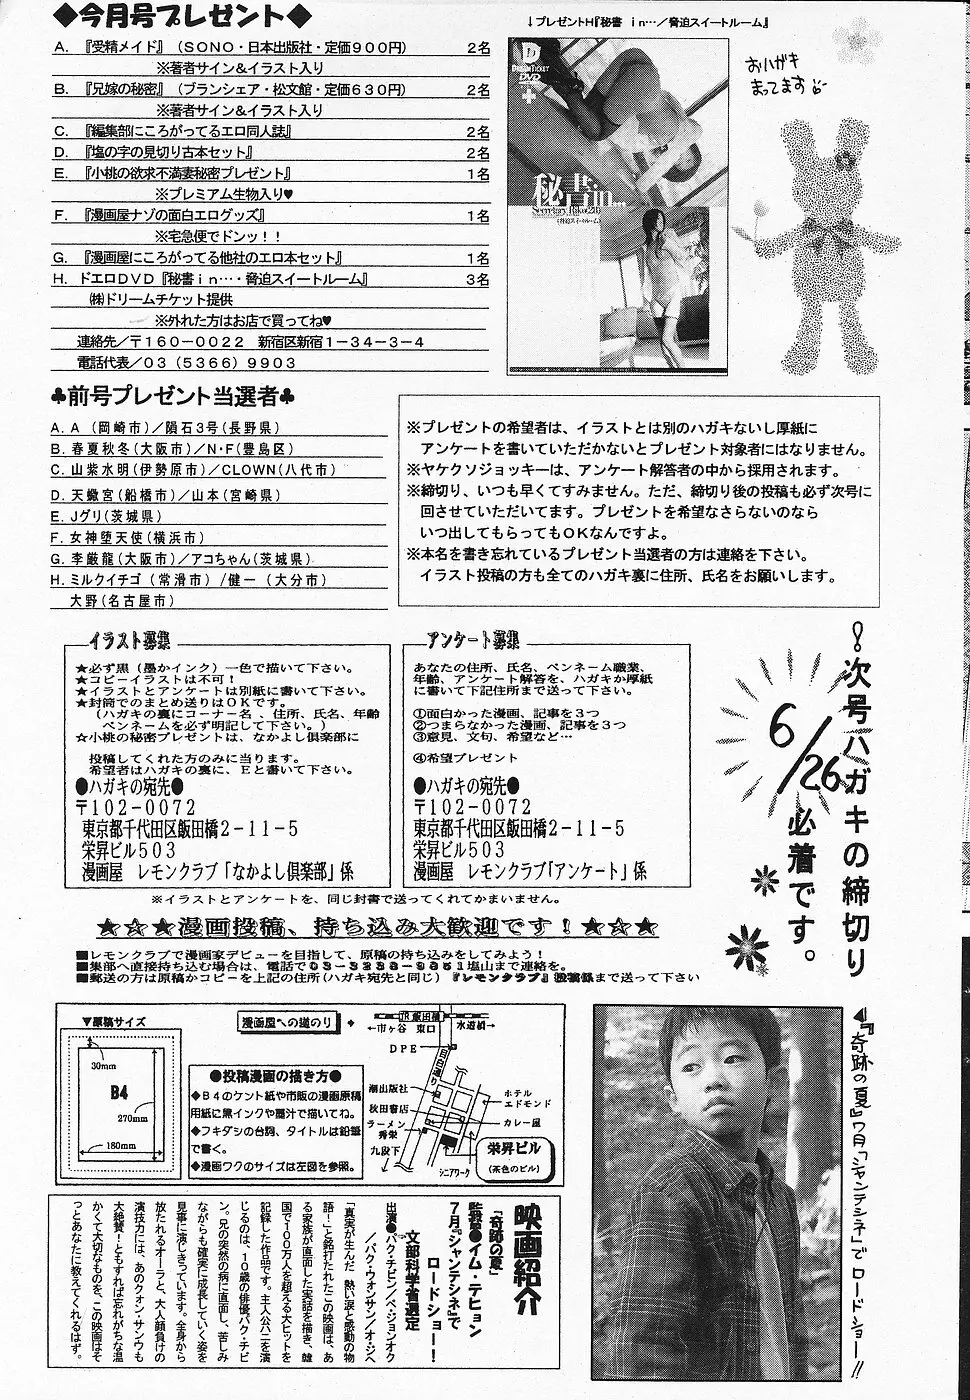 ◆今月号プレゼント◆
A. 『受精メイド』（SONO・日本出版社・定価900円） 2名
※著者サイン&イラスト入り
B. 『兄嫁の秘密』（ブランシェア・松文館・定価630円） 2名
※著者サイン&イラスト入り
C. 『編集部にころがってるエロ同人誌』 2名
D. 『塩の字の見切り古本セット』 2名
E. 『小桃の欲求不満妻秘密プレゼント』 1名
※プレミアム生物入り♥
F. 『漫画屋ナゾの面白エログッズ』 1名
※宅急便でドンッ！！
G. 『漫画屋にころがってる他社のエロ本セット』 1名
H. ドエロDVD『秘書in…・脅迫スイートルーム』 3名
㈱ドリームチケット提供
※外れた方はお店で買ってね♥
連絡先／〒160-0022 新宿区新宿1-34-3-4
電話代表／03（5366）9903
↓プレゼントH『秘書 in…／脅迫スイートルーム』
D
DREAM TICKET
DVD
秘書in...
(脅迫スイートルーム)
おハガキ
まってます
♣前号プレゼント当選者♣
A. A（岡崎市）／隕石3号(長野県)
B. 春夏秋冬(大阪市)／N・F(豊島区)
C. 山紫水明(伊勢原市)／CLOWN(八代市)
D. 天蠍宮(船橋市)／山本(宮崎県)
E. Jグリ(茨城県)
F. 女神堕天使(横浜市)
G. 李厳龍(大阪市)／アコちゃん(茨城県)
H. ミルクイチゴ（常滑市）/健一（大分市）
大野(名古屋市)
※プレゼントの希望者は、イラストとは別のハガキないし厚紙に
アンケートを書いていただかないとプレゼント対象者にはなりません。
※ヤケクソジョッキーは、アンケート解答者の中から採用されます。
※締切り、いつも早くてすみません。ただ、締切り後の投稿も必ず次号に
回させていただいてます。プレゼントを希望なさらないのなら
いつ出してもらってもOKなんですよ。
※本名を書き忘れているプレゼント当選者の方は連絡を下さい。
イラスト投稿の方も全てのハガキ裏に住所、氏名をお願いします。
イラスト募集
★必ず黒（墨かインク）一色で描いて下さい。
★コピーイラストは不可！
★イラストとアンケートは別紙に書いて下さい。
★封筒でのまとめ送りはOKです。
（ハガキの裏にコーナー名、住所、氏名、年齢
ペンネームを必ず明記して下さい。）
★小桃の秘密プレゼントは、なかよし倶楽部に
投稿してくれた方のみに当ります。
希望者はハガキの裏に、Eと書いて下さい。
●ハガキの宛先●
〒102-0072
東京都千代田区飯田橋2-11-5
栄昇ビル503
漫画屋 レモンクラブ「なかよし倶楽部」係
アンケート募集
あなたの住所、氏名、ペンネーム職業、
年齢、アンケート解答を、ハガキか厚紙
に書いて下記住所まで送って下さい。
①面白かった漫画、記事を3つ
②つまらなかった漫画、記事を3つ
③意見、文句、希望など…
④希望プレゼント
●ハガキの宛先●
〒102-0072
東京都千代田区飯田橋2-11-5
栄昇ビル503
漫画屋 レモンクラブ「アンケート」係
！次号ハガキの締切り
6/26
必着です。
※イラストとアンケートを、同じ封書で送ってくれてかまいません。
★☆★漫画投稿、持ち込み大歓迎です！★☆★
■レモンクラブで漫画家デビューを目指して、原稿の持ち込みをしてみよう！
■集部へ直接持ち込む場合は、電話で
塩山まで連絡を。
■郵送の方は原稿かコピーを上記の住所(ハガキ宛先と同じ)『レモンクラブ』
係まで送って下さい
▼原稿サイズ
30mm
B4
270mm
180mm
漫画屋への道のり
●投稿漫画の描き方●
◆B4のケント紙や市販の漫画原稿
用紙に黒インクや墨汁で描いてね。
◆フキダシの台詞、タイトルは鉛筆
で書く。
◆漫画ワクのサイズは左図を参照。
JR飯田橋
←市ヶ谷 東口 水道橋→
DPE
潮出版社
秋田書店
ラーメン
秀栄
九段下
ホテル
エドモンド
カレー屋
シニアワーク
栄昇ビル
(茶色のビル)
▲『奇跡の夏』7月「シャンテシネ」でロードショー!!
映画紹介
『奇跡の夏』
監督●イム・テヒョン
7月『シャンテシネ』で
ロードショー！
文部科学省選定
出演●パク・チビン／ペ・ジョンオク
／パク・ウォンサン／オ・ジヘ
「真実が生んだ、熱い涙と感動の物
語！」と銘打たれたこの映画は、あ
る家族が直面した実話を描き、韓
国で100万人を超える大ヒットを
記録した作品です。主人公ハニを演
じるのは、10歳の俳優パク・チビ
ン。兄の突然の病に直面し、苦しみ
ながらも確実に成長していく姿を
見事に演じきっています。全身から
放たれるオーラと、大人顔負けの
演技力には、あのクォン・サンウも
大絶賛！ともすれば忘れがちな温
かくて大切なものを、この映画はそ
っとあなたに教えてくれるはず。